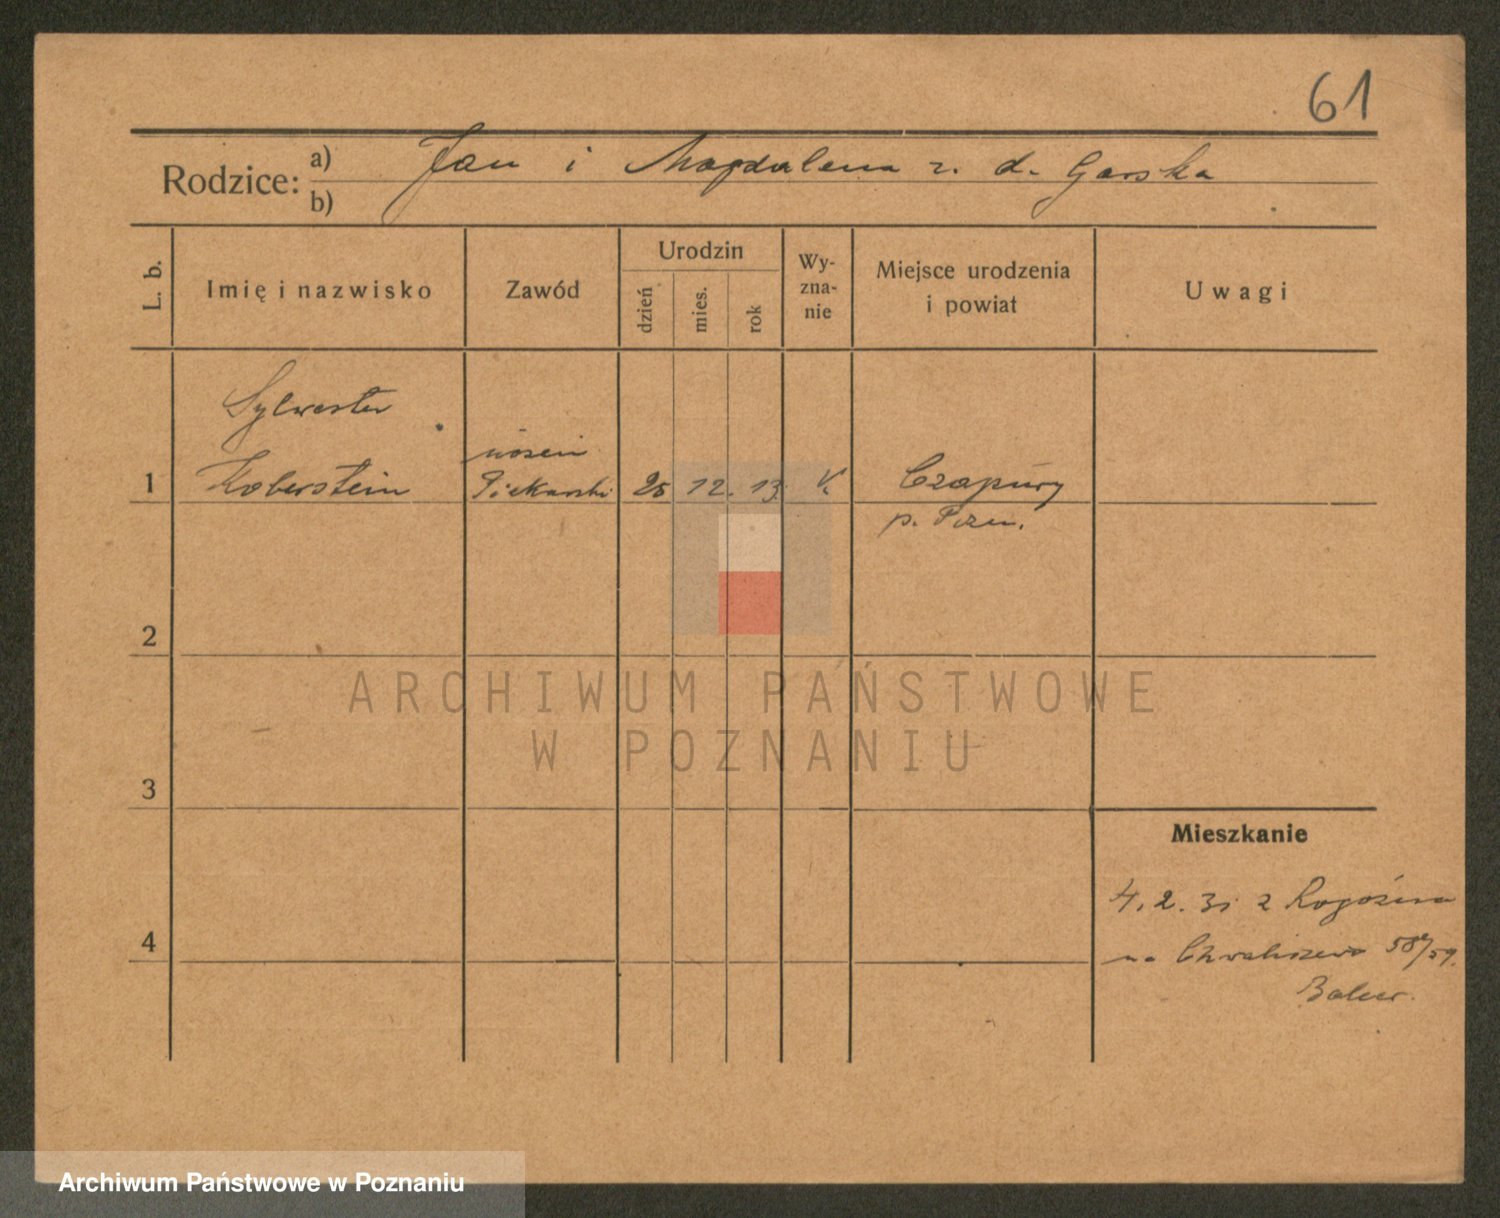 61
Rodzice: a) Jan i Magdalena z. d. Garska
b)
L. b. Imię i nazwisko Zawód Urodzin dzień mies. rok Wyznanie Miejsce urodzenia i powiat Uwagi
Sylwester
uczeń
1 Koberstein Piekarski 25 12. 13. k. Czapury
p. Pozn.
2
ARCHIWUM PAŃSTWOWE
W POZNANIU
3
Mieszkanie
4. 2. 31 z Rogoźna
4
na Chwaliszewo 58/59.
Archiwum Państwowe w Poznaniu